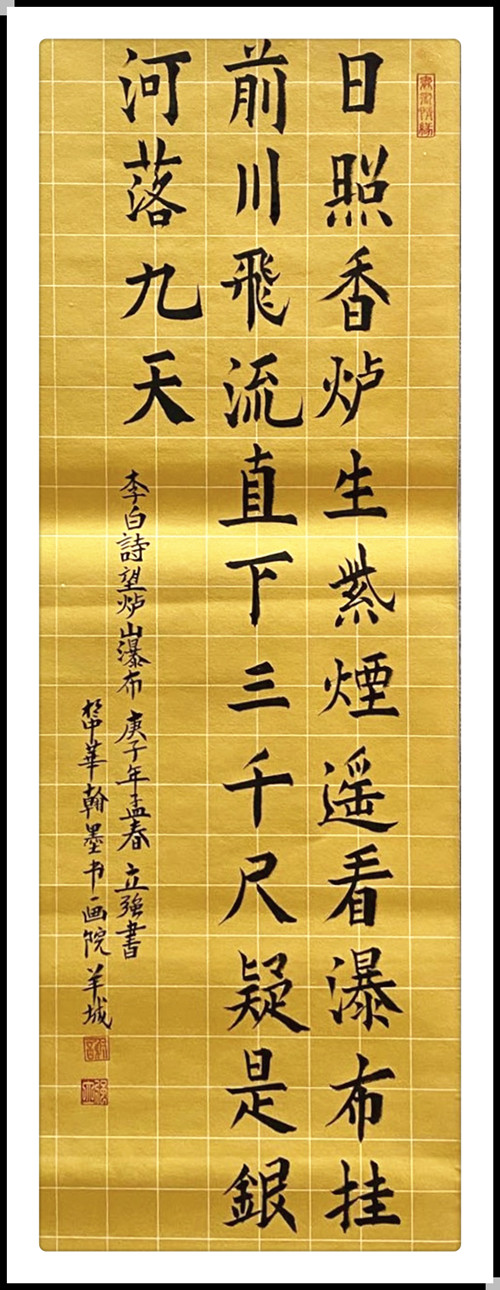 日照香炉生紫煙遥看瀑布挂
前川飛流直下三千尺疑是銀
河落九天
李白詩望炉山瀑布 庚子年孟春 立強書
華翰墨书画院 羊城